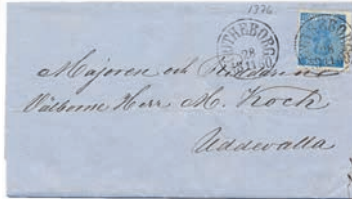 1376
GÖTHEBORG
28
11
1860
Majoren och Riddaren
Välborne Herr M. Koch
Uddevalla